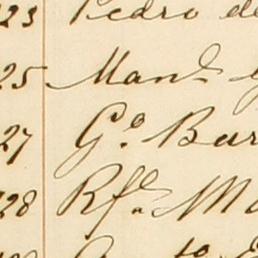 23 Pedro de
25 Man.l
27 G.o Bar
28 Rf.l Ma